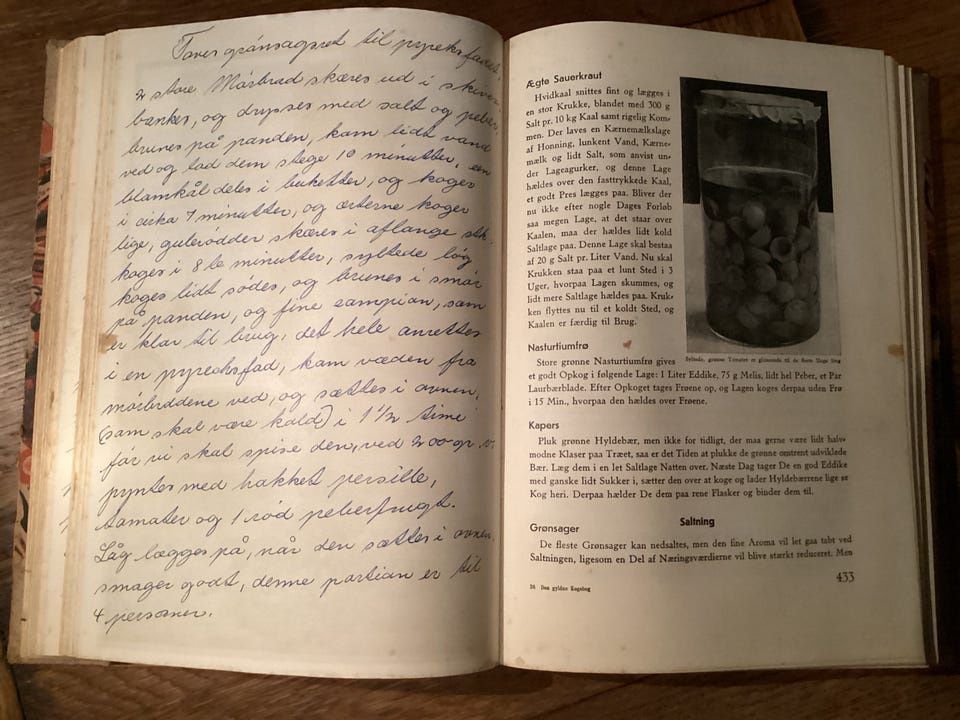 Toves grønsagsret til pyreksfadet.
2 store Mørbrad skæres ud i skiver,
bankes, og drysses med salt og peber,
brunes på panden, kom lidt vand
ved og lad dem stege 10 minutter, en
blomkål deles i buketter, og koges
i cirka 7 minutter, og ærterne koges
lige, gulerødder skæres i aflange stk.
koges i 8 le minutter, syltede løg
koges lidt sødes, og brunes i smør
på panden, og fine sampian, som
er klar til brug, det hele anrettes
i en pyreksfad, kom væden fra
mørbraddene ved, og sættes i ovnen,
(som skal være kold) i 1 1/2 time
før vi skal spise den, ved 200 gr.
pyntes med hakket persille,
tomater og 1 rød peberfrugt.
Låg lægges på, når den sættes i ovnen,
smager godt, denne portion er til
4 personer.
Ægte Sauerkraut
Hvidkaal snittes fint og lægges i
en stor Krukke, blandet med 300 g
Salt pr. 10 kg Kaal samt rigelig Kom-
men. Der laves en Kærnemælkslage
af Honning, lunkent Vand, Kærne-
mælk og lidt Salt, som anvist un-
der Lageagurker, og denne Lage
hældes over den fasttrykkede Kaal,
et godt Pres lægges paa. Bliver der
nu ikke efter nogle Dages Forløb
saa megen Lage, at det staar over
Kaalen, maa der hældes lidt kold
Saltlage paa. Denne Lage skal bestaa
af 20 g Salt pr. Liter Vand. Nu skal
Krukken staa paa et lunt Sted i 3
Uger, hvorpaa Lagen skummes, og
lidt mere Saltlage hældes paa. Kruk-
ken flyttes nu til et koldt Sted, og
Kaalen er færdig til Brug.
Syltede, grønne Tomater er glimrende til de fleste Slags Steg
Nasturtiumfrø
Store grønne Nasturtiumfrø gives
et godt Opkog i følgende Lage: 1 Liter Eddike, 75 g Melis, lidt hel Peber, et Par
Laurbærblade. Efter Opkoget tages Frøene op, og Lagen koges derpaa uden Frø
i 15 Min., hvorpaa den hældes over Frøene.
Kapers
Pluk grønne Hyldebær, men ikke for tidligt, der maa gerne være lidt halv-
modne Klaser paa Træet, saa er det Tiden at plukke de grønne omtrent udviklede
Bær. Læg dem i en let Saltlage Natten over. Næste Dag tager De en god Eddike
med ganske lidt Sukker i, sætter den over at koge og lader Hyldebærrene lige se
Kog heri. Derpaa hælder De dem paa rene Flasker og binder dem til.
Saltning
Grønsager
De fleste Grønsager kan nedsaltes, men den fine Aroma vil let gaa tabt ved
Saltningen, ligesom en Del af Næringsværdierne vil blive stærkt reduceret. Men
28 Den gyldne Kogebog
433